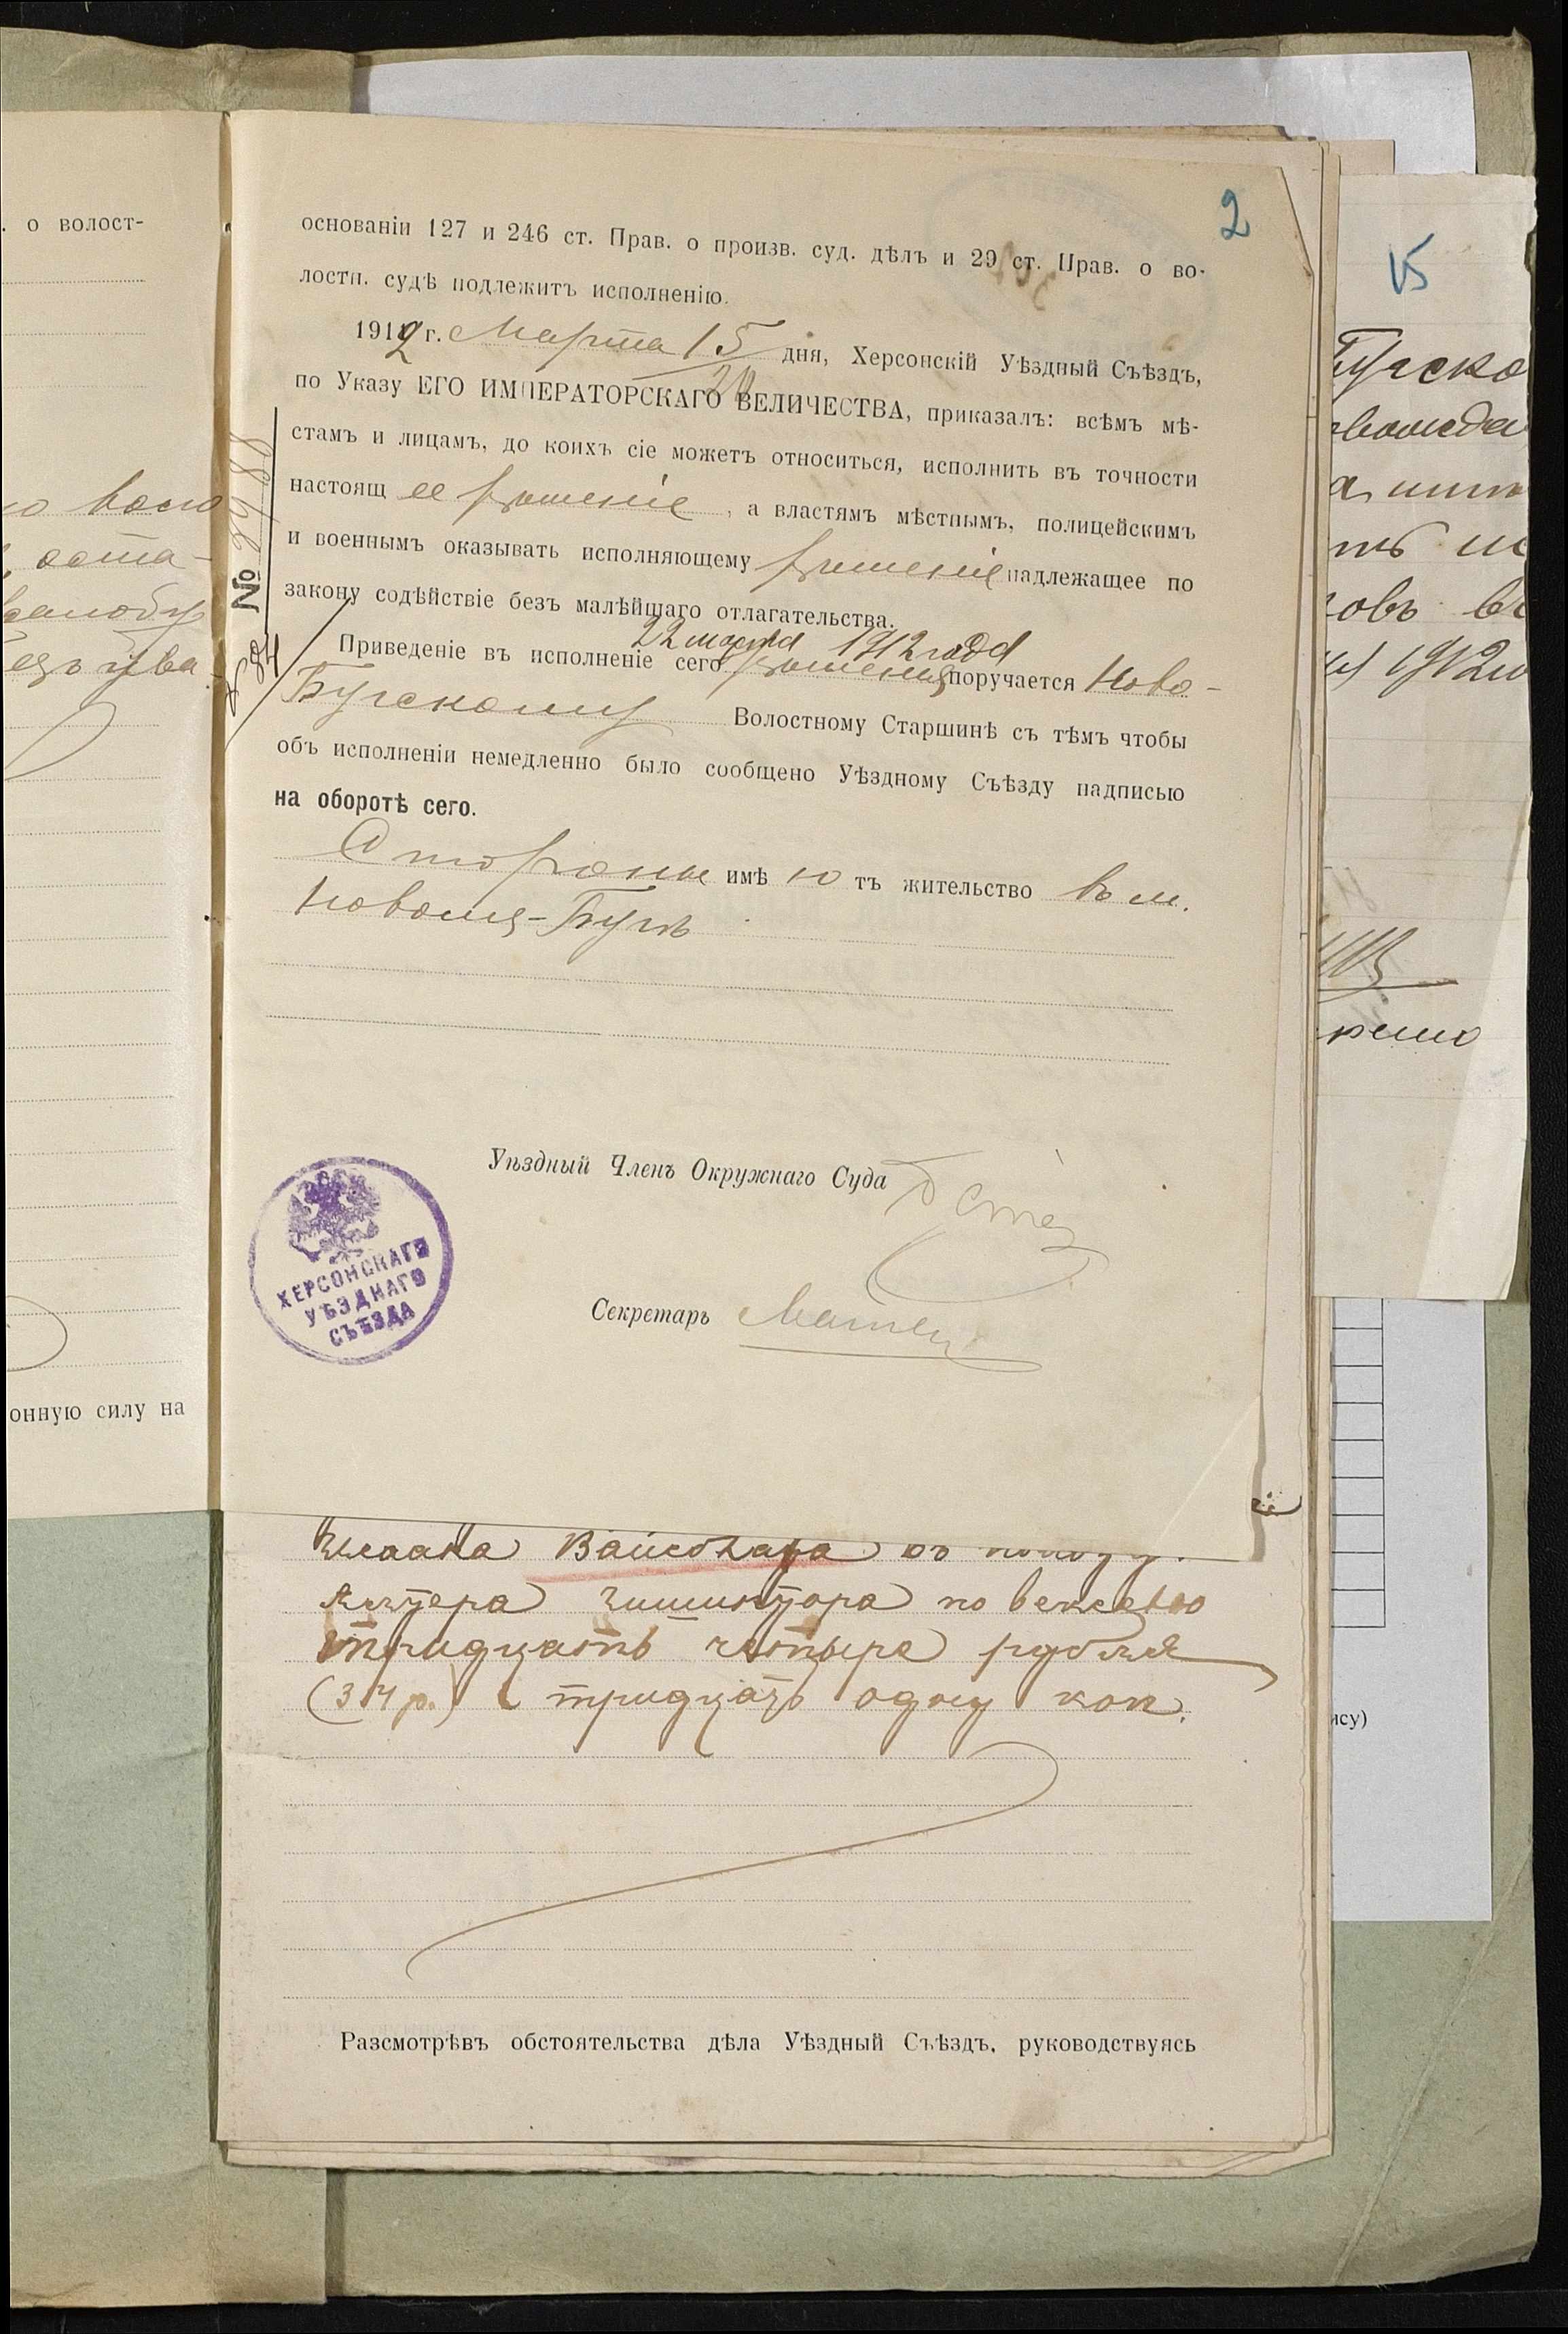 . о волост-
оста-
жалобу
онную силу на
2
основаніи 127 и 246 ст. Прав. о произв. суд. дѣлъ и 29 ст. Прав. о во-
лостн. судѣ подлежитъ исполненію.
1912 г. Марта 15 дня, Херсонскій Уѣздный Съѣздъ,
20
по Указу ЕГО ИМПЕРАТОРСКАГО ВЕЛИЧЕСТВА, приказалъ: всѣмъ мѣ-
стамъ и лицамъ, до коихъ сіе можетъ относиться, исполнить въ точности
настоящ ее рѣшеніе, а властямъ мѣстнымъ, полицейскимъ
и военнымъ оказывать исполняющему рѣшеніе надлежащее по
закону содѣйствіе безъ малѣйшаго отлагательства.
22 марта 1912 года
Приведеніе въ исполненіе сего рѣшенія поручается Ново-
Бугскому Волостному Старшинѣ съ тѣмъ чтобы
объ исполненіи немедленно было сообщено Уѣздному Съѣзду надписью
на оборотѣ сего.
Стороны имѣ ю тъ жительство въ м.
Новомъ-Бугѣ
№
Уѣздный Членъ Окружнаго Суда
Секретарь
ХЕРСОНСКАГО
УѢЗДНАГО
СЪѢЗДА
Вайсбанда въ пользу
по векселю
тридцать четыре рубля
(34 р.) тридцать одну коп.
Разсмотрѣвъ обстоятельства дѣла Уѣздный Съѣздъ, руководствуясь
15
Бугско
1912
ису)